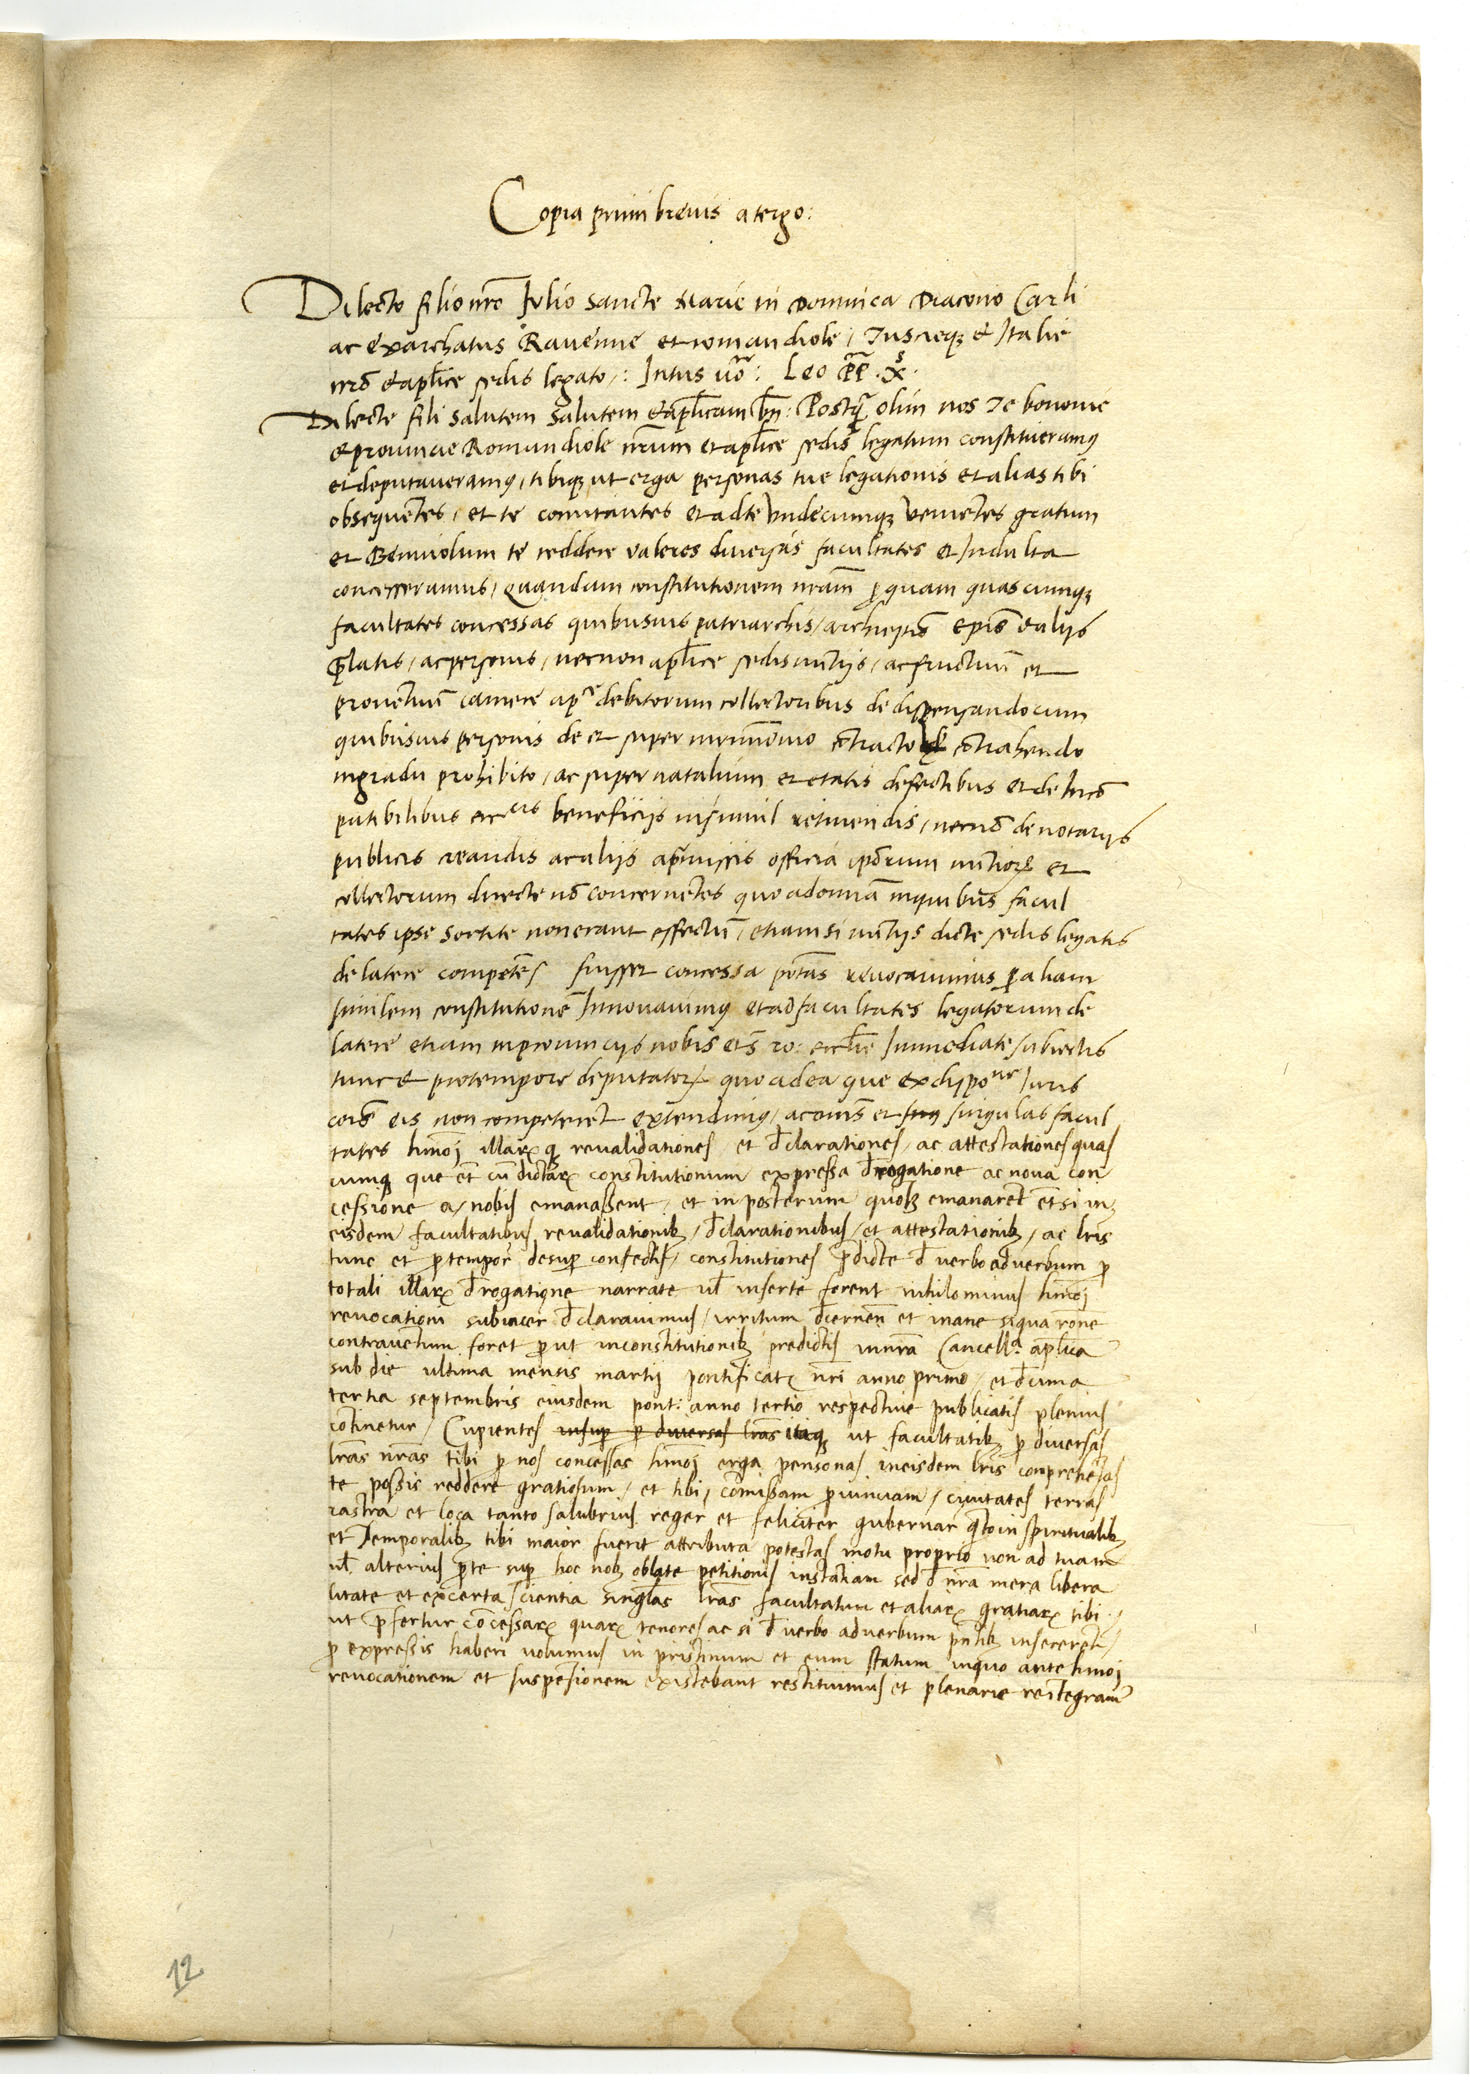 Copia primi brevis a tergo:
Dilecto filio nr̄o Iulio sancte Marie in Domnica Diacono Carli
ac exarchatus Ravenne et romandiole / Tuscieq̨ & Italie
nr̄o & apl̄ice sedis legato /: Intus uō: Leo P̄P̄ .X.
Dilecte fili salutem salutem & apl̄icam bn̄: Postq̄ olim nos Te bononie
& provincie Romandiole nr̄um et apl̄ice sedis legatum constitueramus
et deputaveramus / tibiq̨ ut erga personas tue legationis et alias tibi
obsequētes / et te comitantes et ad te undecumq̨ veniētes gratum
et Benivolum te reddere valeres diversas facultates et Indulta
concesseramus / quandam constitutionem nr̄am ꝑ quam quascumq̨
facultates concessas quibusvis patriarchis / archiep̄is ep̄is & alijs
p̄latis / ac personis / necnon apl̄ice sedis nūtijs / ac fructuū et
proventuū camere ap.ce debitorum collectoribus de dispensando cum
quibusvis personis de et super mr̄imonio cōtracto cōtrahendo
in gradu prohibito / ac super natalium et etatis defectibus et de Inco
patibilibus ecc.cis beneficijs insimul retinendis / necnō de notarijs
publicis creandis ac alijs a p̄missis officia ip̄orum nūtioꝝ et
collectorum directe nō concernētes quo ad omīa in quibus facul
tates ipse sortite non erant effectū / etiam si nūtijs dicte sedis legatis
de latere competēs fuisset concessa ptās revocavimus ꝑ aliam
similem constitutionē Innovavimus et ad facultates legatorum de
latere etiam in provincijs nobis & S. ro: ecclīe Immediate subiectis
tunc & pro tempore deputatoꝝ quo ad ea que ex disp.one Iuris
cōis eis non competerēt extendimus / ac omīs et singulas facul
tates hmōj illaꝝ q̨ revalidationes et d̄clarationes / ac attestationes quas
cumq̨ que ēt cū dictaꝝ constitutionum expressa d̄rogatione ac nova con
cessione a / nobis emanassent / et in posterum quolz emanarēt ēt si in
eisdem facultatibus revalidationibz / d̄clarationibus / et attestationibz / ac lr̄is
tunc et ꝓ tempore desuꝑ confectis / constitutiones p̄dicte d̄ verbo ad verbum ꝑ
totali illaꝝ d̄rogatione narrate ul̄ inserte forent nihilominus hmōj
revocationi subiacere d̄claravimus / irritum d̄cernēn et inane si qua rōne
contraventum foret ꝓut in constitutionibz predictis in nr̄a Cancell.a apl̄ica
sub die ultima mensis martij pontificatꝰ nr̄i anno primo / et d̄cima
tertia septembris eiusdem pont: anno tertio respective publicatis plenius
cōtinetur / Cupientes insuꝑ ꝑ diversas lr̄as itaq̨ ut facultatibz ꝑ diversas
lr̄as nr̄as tibi ꝑ nos concessas hmōj erga personas in eisdem lr̄is conprehēsas
te possis reddere gratiosum / et tibi comissam ꝓvinciam / civitates terras
castra et loca tanto salubrius reger et feliciter gubernar q̄to in spiritualibz
et Temporalibz tibi maior fuerit attributa potestas motu proprio non ad tuam
ul̄ alterius ꝓ te suꝑ hoc nobz oblate petitionis instātiam sed d̄ nr̄a mera libera
litate et ex certa scientia singlās lr̄as facultatum et aliaꝝ gratiaꝝ tibi /
ut p̄fertur cōcessaꝝ quaꝝ tenores ac si d̄ verbo ad verbum p̄ntibz insecerētr /
ꝓ expressis haberi volumus in pristinum et eum statum in quo ante hmōj
revocationem et suspensionem existebant restituimus et plenarie reītegram̄
12